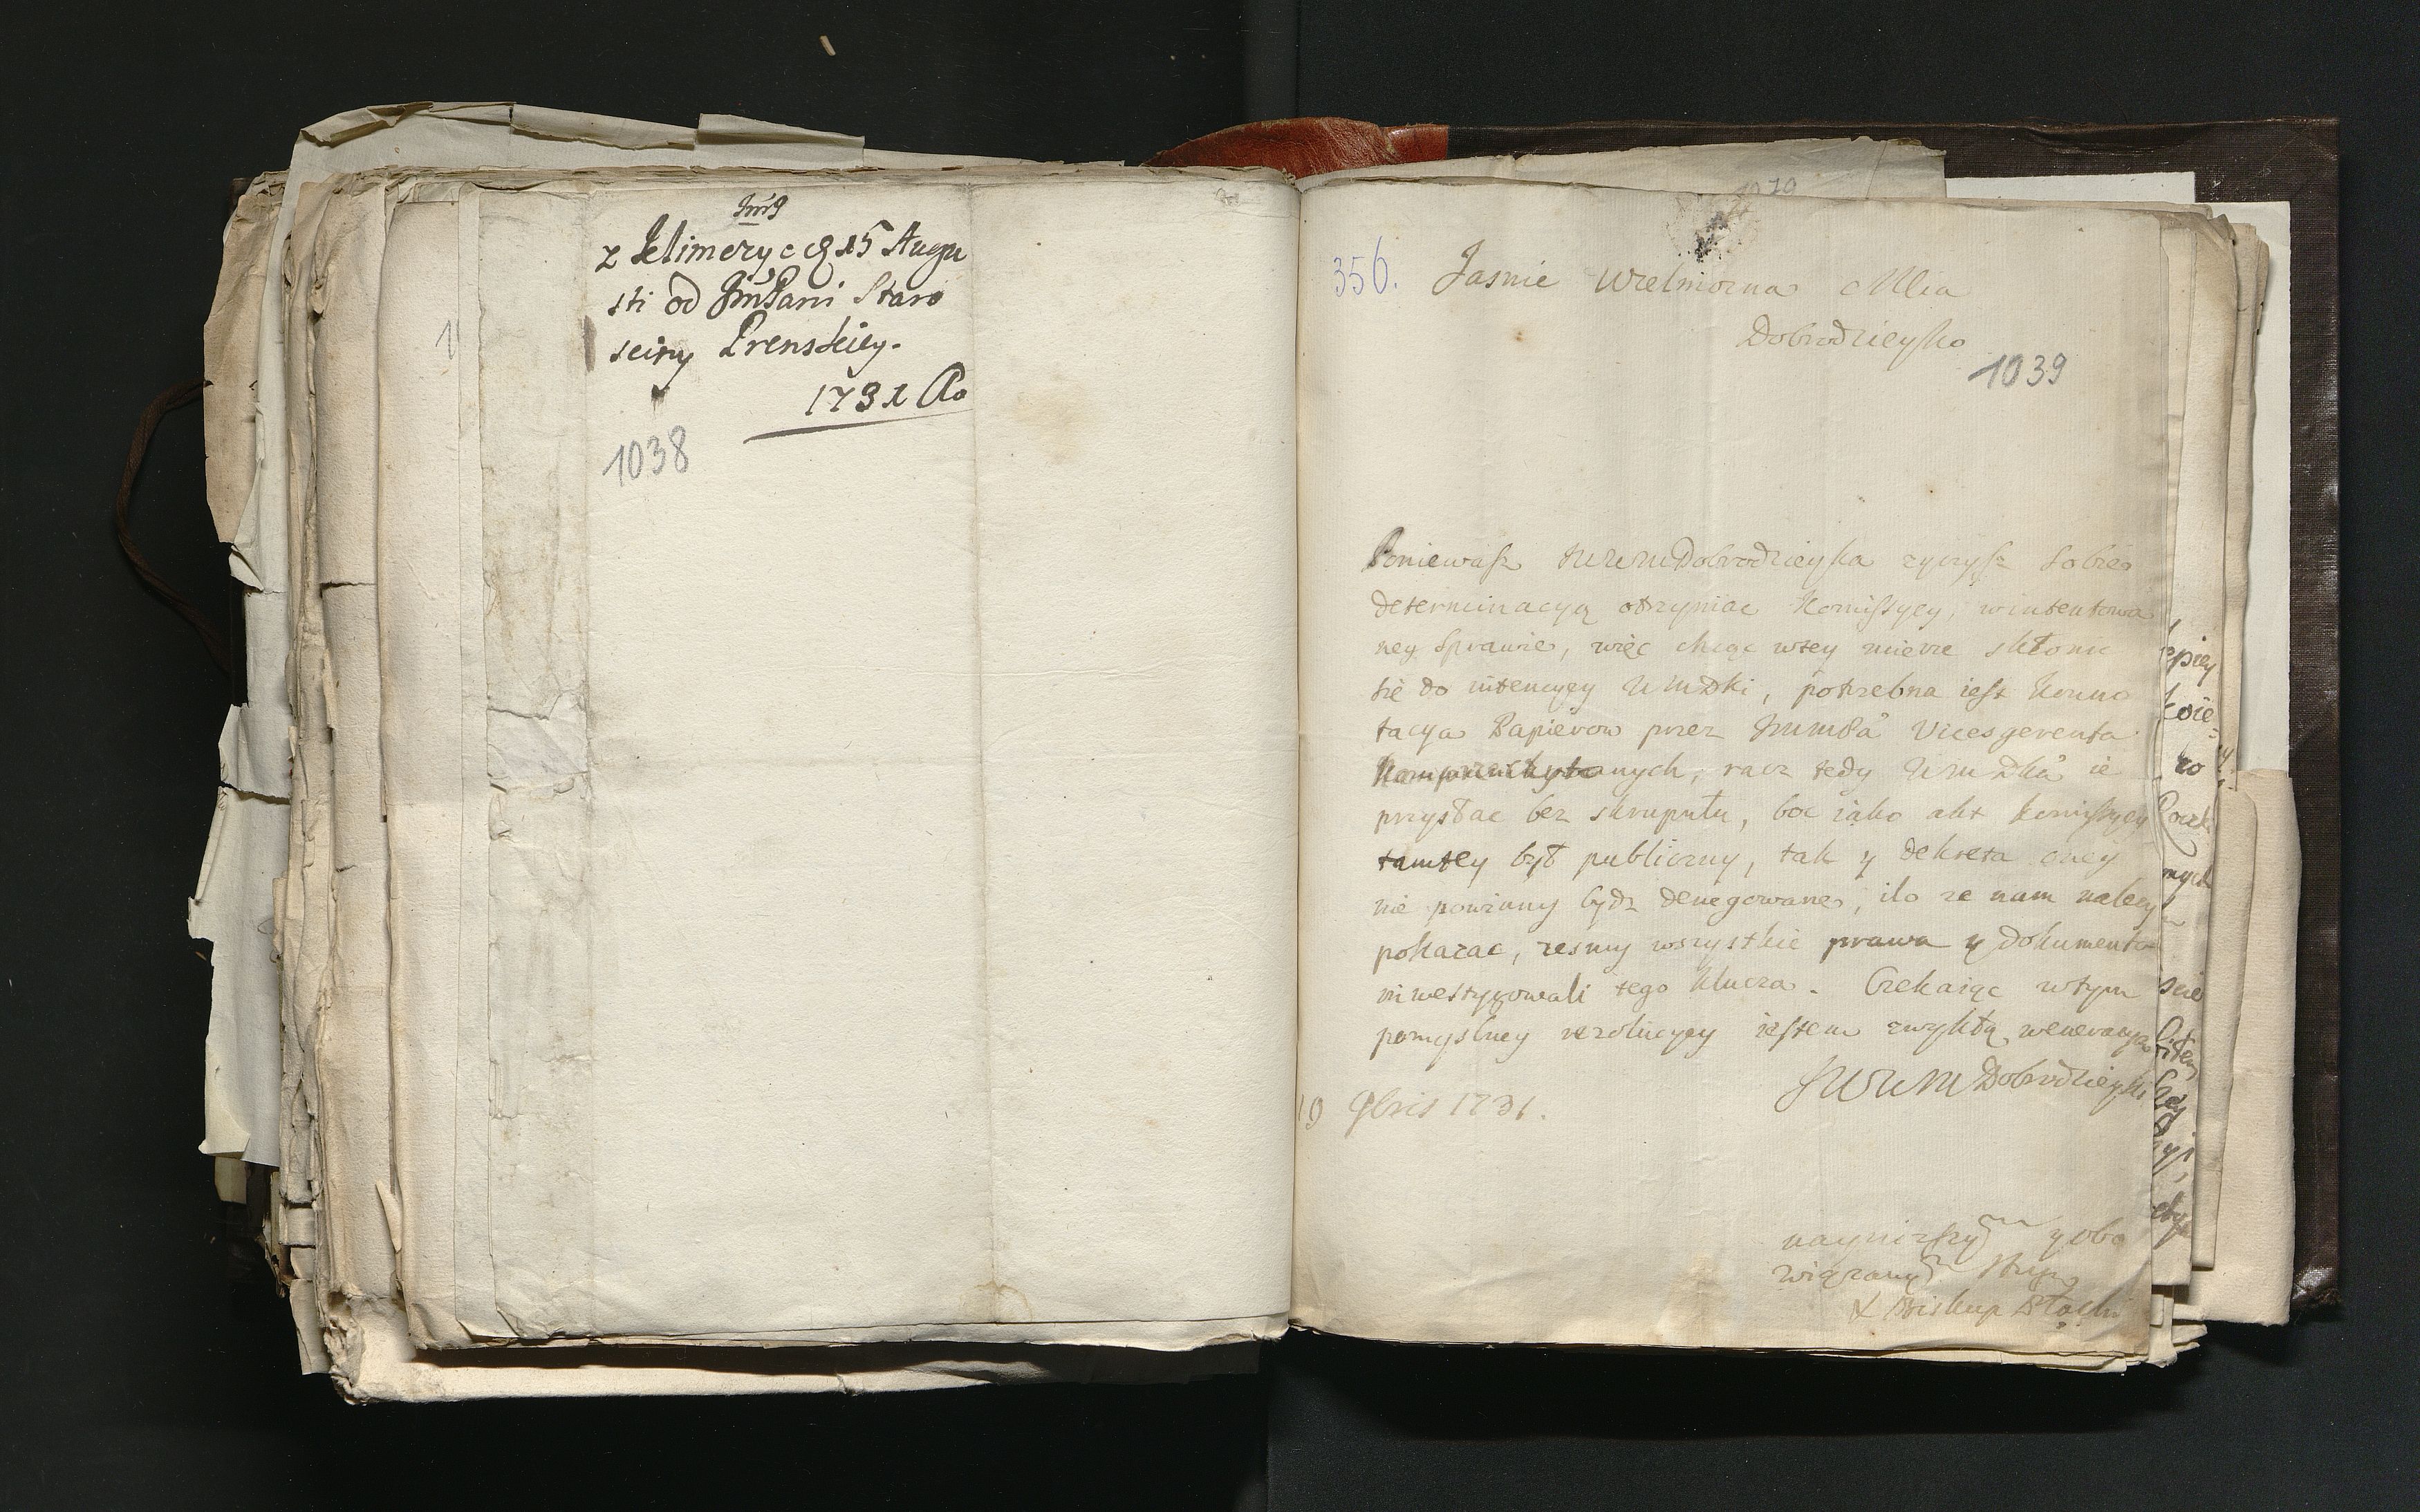 Jmp
z Jelimeryc d 15 Augu
sti od JmPani Staro
sciny Prenskiey.
1731 Ao
1038
356.
Jasnie Wielmozna Mcia
Dobrodzieyko
1039
Poniewasz JWWMDobrodzieyka zyczysz sobie
determinacyą otrzymac Komissyey, wintentowa
ney Sprawie, więc chcąc wtey mierze skłonic
się do intencyey WMDki, potrzebna iest Konno
tacya Papierow przez JmmPa Vicesgerenta
nych, racz tedy WMDka ie
przysłac bez skrupułu, boc iako akt komissyey
tamtey był publiczny, tak y dekreta oney
nie powinny bydz denegowane, ilo ze nam nalezy
pokazac, zesmy wszystkie prawa y dokumenta
inwestygowali tego klucza. Czekaiąc wtym
pomyslney rezolucyey iestem zwykłą weneracyą
JWWMDobrodzieyki
19 9bris 1731.
nayniższym y obo
wiązanym sługą
X Biskup Płocki